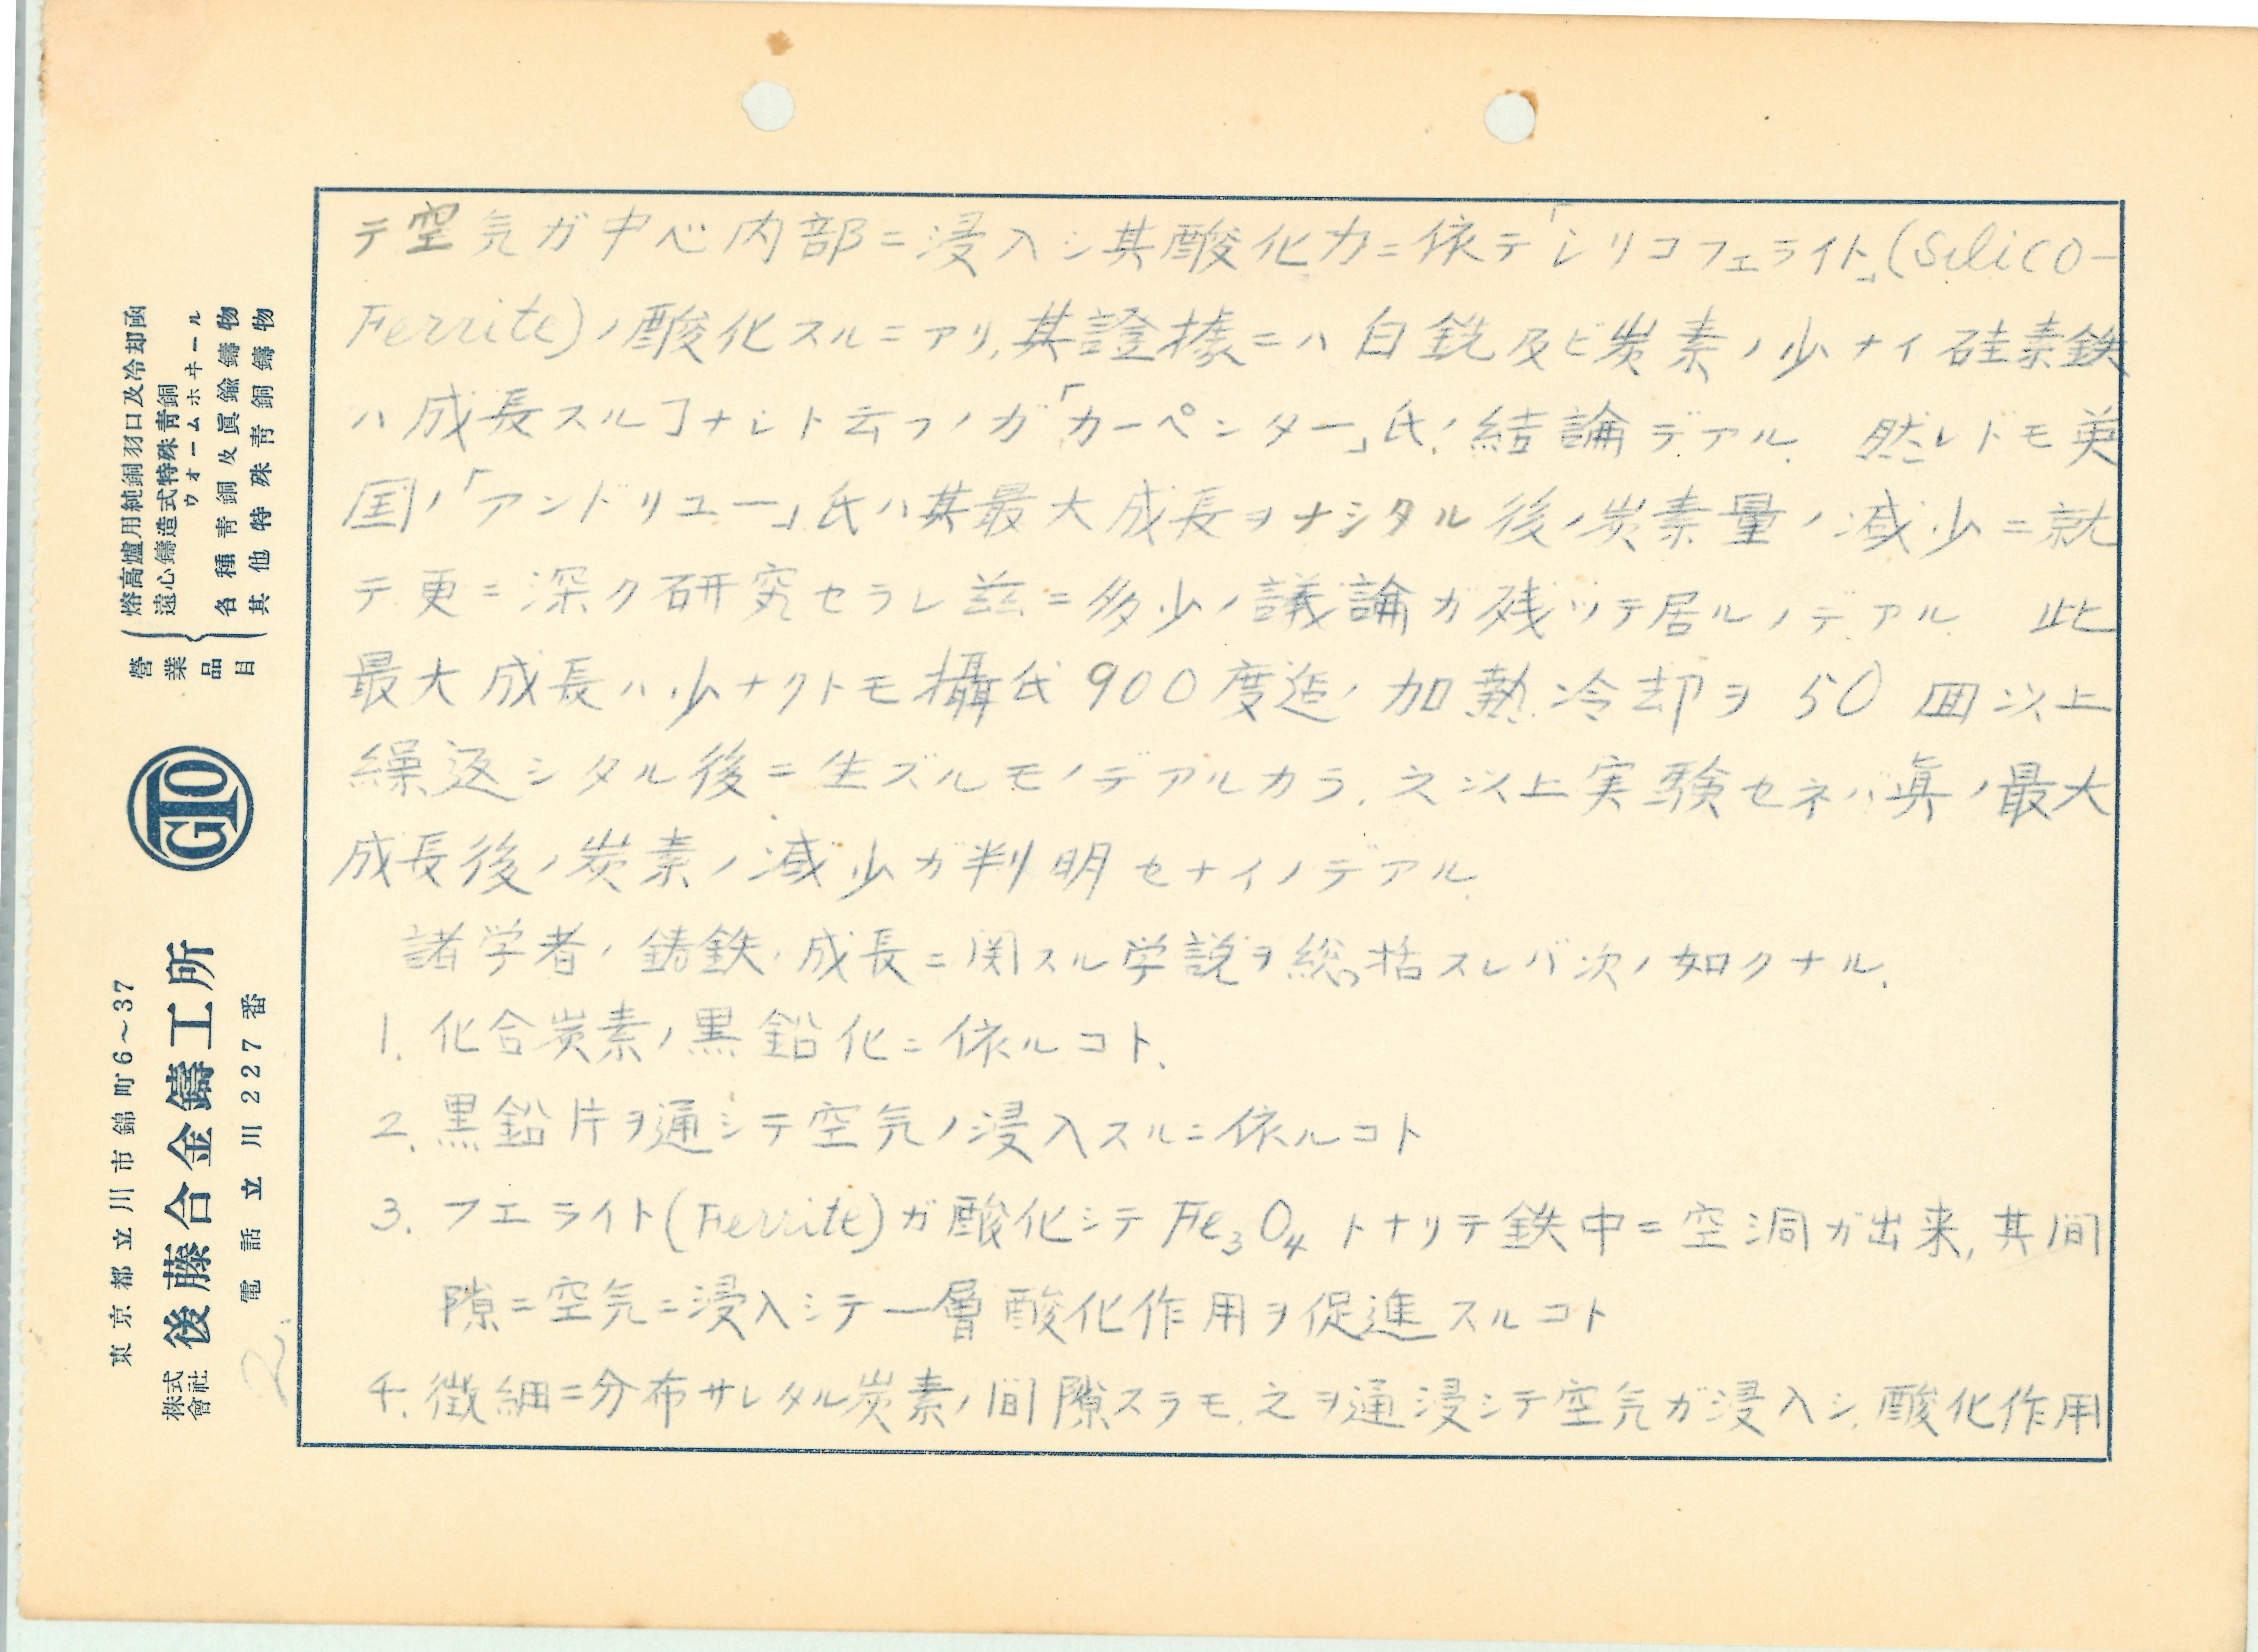 テ空気ガ中心内部ニ浸入シ其酸化力ニ依テ「シリコフェライト」(Silico-
Ferrite)ノ酸化スルニアリ、其證據ニハ白銑及ビ炭素ノ少ナイ硅素鉄
ハ成長スルヿナシト云フノガ「カーペンター」氏ノ結論デアル. 然レドモ英
国ノ「アンドリユー」氏ハ其最大成長ヲナシタル後ノ炭素量ノ減少ニ就
テ更ニ深ク研究セラレ茲ニ多少ノ議論ガ残ツテ居ルノデアル 此
最大成長ハ少ナクトモ攝氏900度迄ノ加熱冷却ヲ50回以上
繰返シタル後ニ生ズルモノデアルカラ、之以上実験セネバ真ノ最大
成長後ノ炭素ノ減少ガ判明セナイノデアル.
諸学者ノ鋳鉄ノ成長ニ関スル学説ヲ総括スレバ次ノ如クナル.
1. 化合炭素ノ黒鉛化ニ依ルコト.
2. 黒鉛片ヲ通シテ空気ノ浸入スルニ依ルコト
3. フエライト(Ferrite)ガ酸化シテFe₃O₄トナリテ鉄中ニ空洞ガ出来,其間
隙ニ空気ニ浸入シテ一層酸化作用ヲ促進スルコト
4. 微細ニ分布サレタル炭素ノ間隙スラモ之ヲ通浸シテ空気ガ浸入シ、酸化作用
營業品目
熔高爐用純銅羽口及冷却函
遠心鑄造式特殊靑銅
ウオームホヰール
各種靑銅及眞鍮鑄物
其他特殊靑銅鑄物
GTO
東京都立川市錦町6~37
株式會社 後藤合金鑄工所
電話立川227番
2.